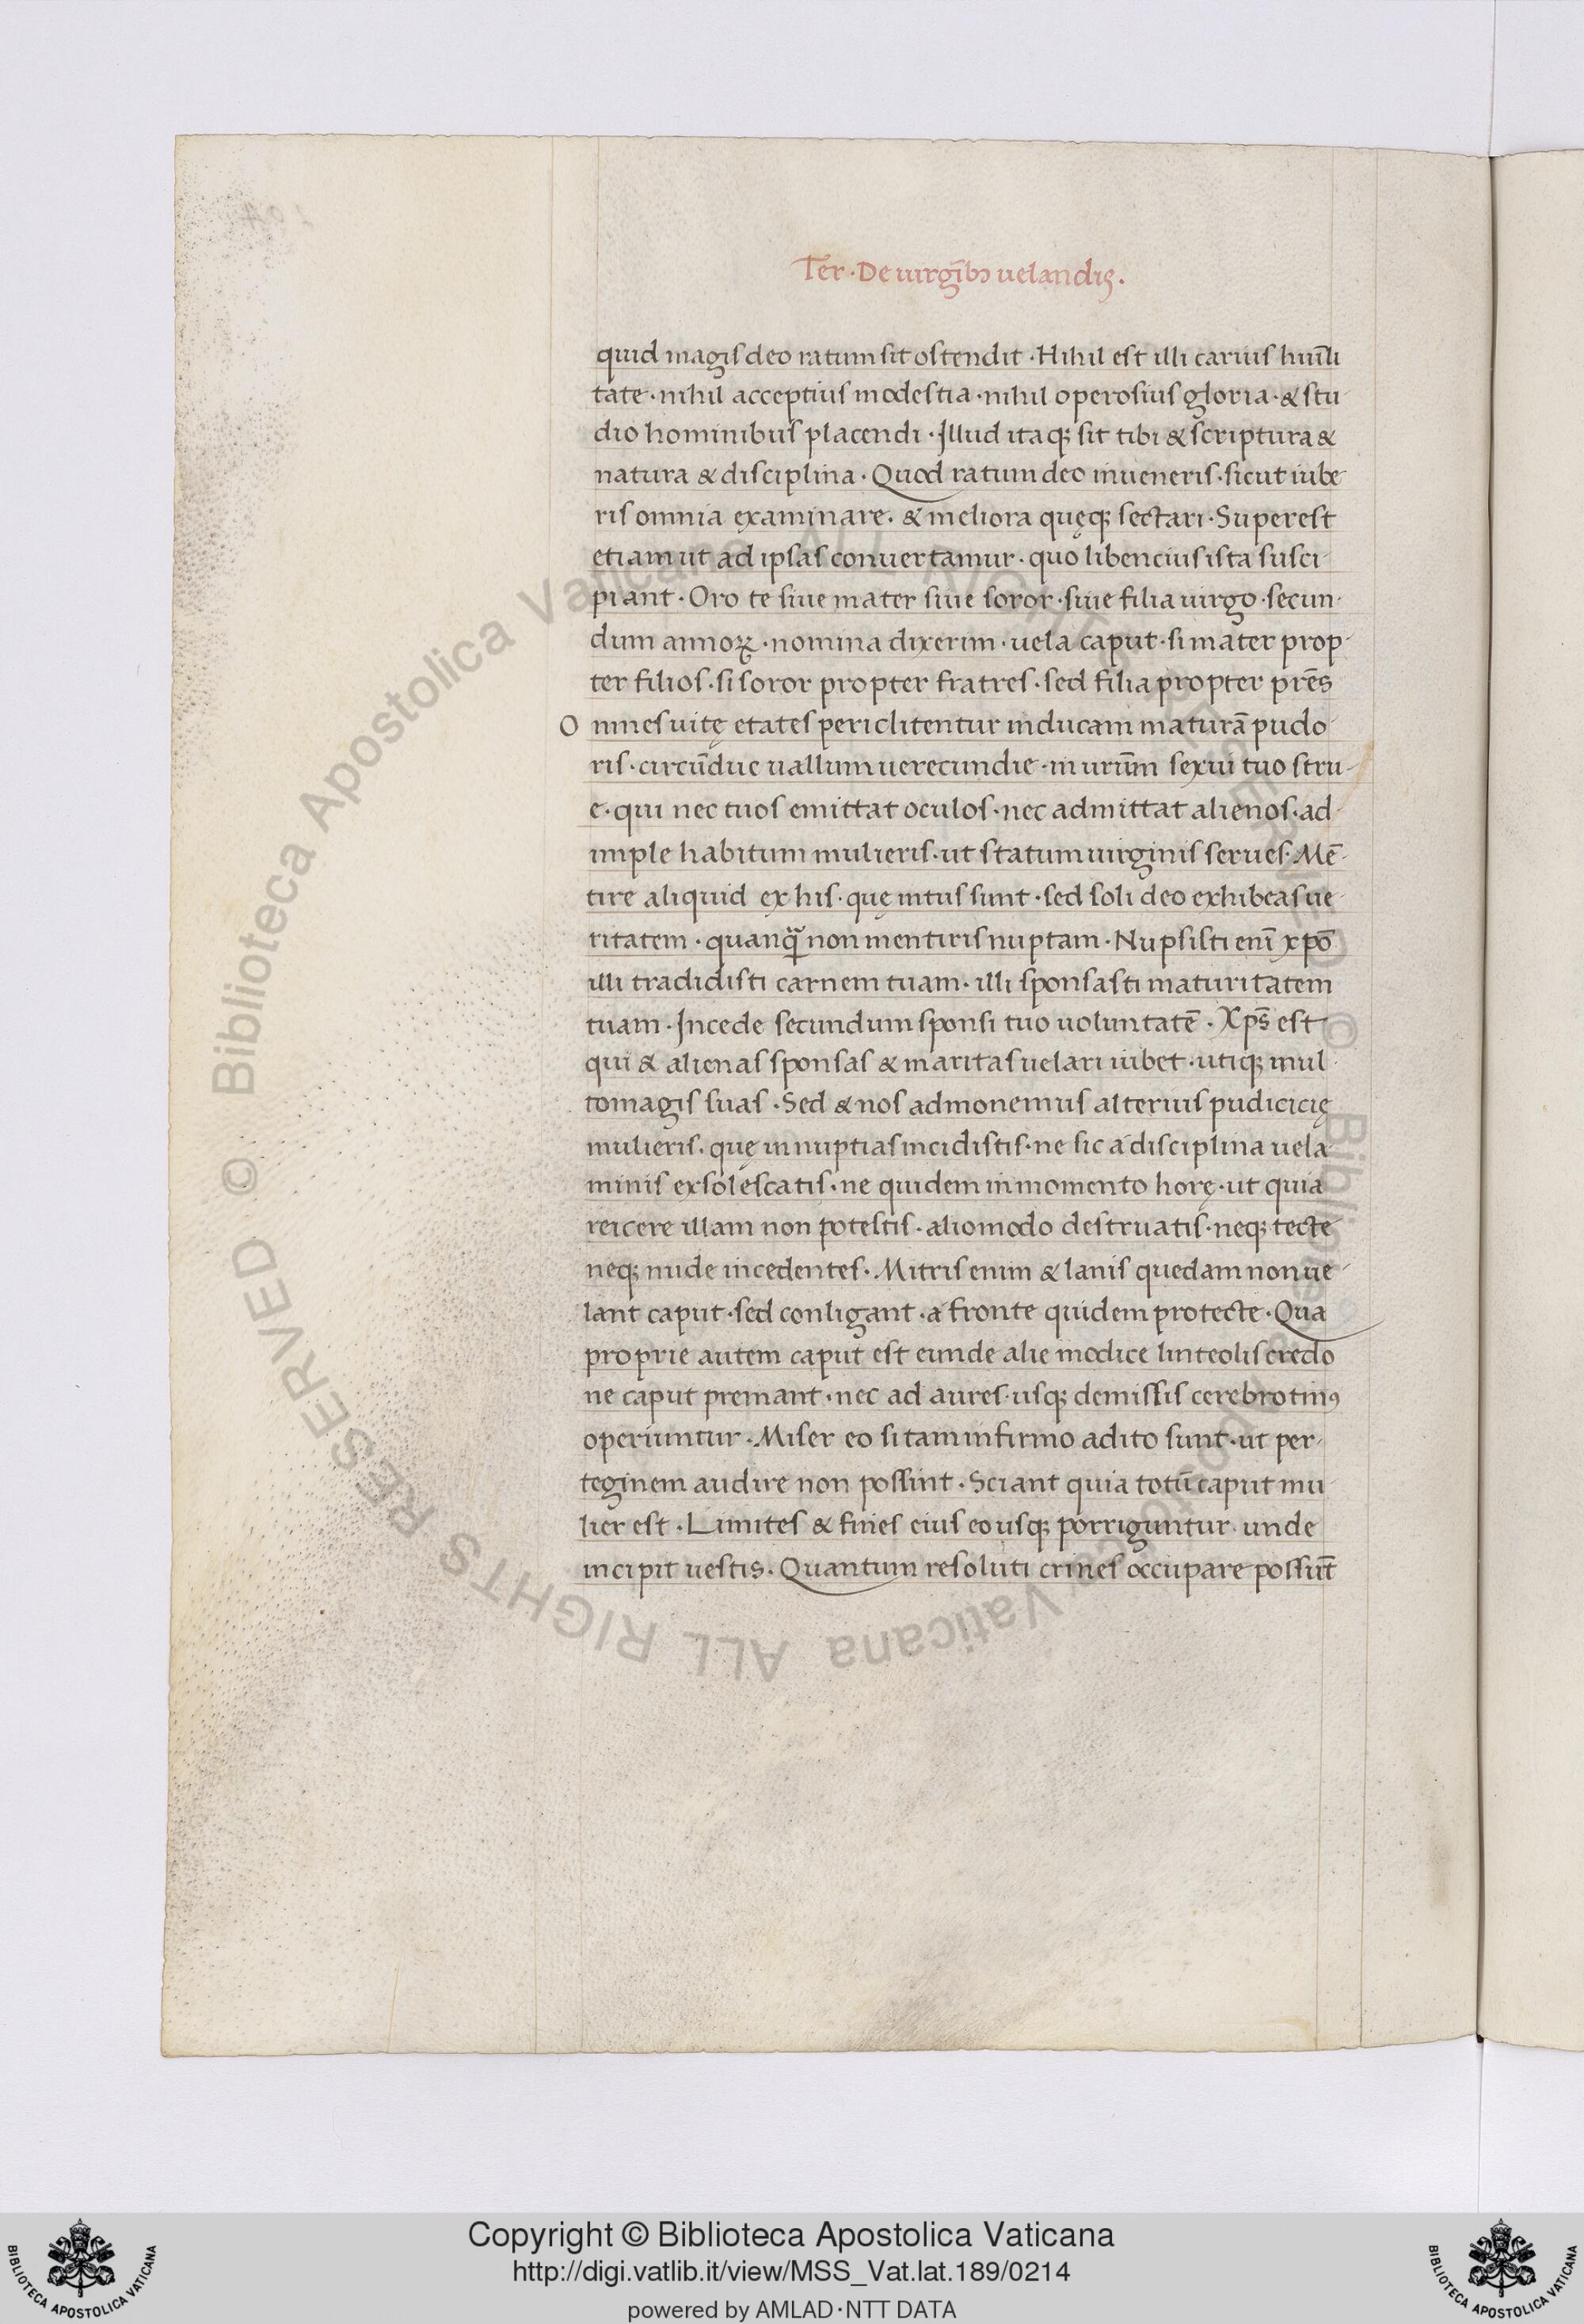 Ter · De uirgīb᷒ uelandis.
quid magis deo ratum sit ostendit · Nihil est illi carius humīli
tate · nihil acceptius modestia · nihil operosius gloria · & stu
dio hominibus placendi · Illud itaq; sit tibi & scriptura &
natura & disciplina · Quod ratum deo inueneris · sicut iube
ris omnia examinare · & meliora quęq; sectari · Superest
etiam ut ad ipsas conuertamur · quo libencius ista susci
piant · Oro te siue mater siue soror · siue filia uirgo · secun
dum annoꝝ · nomina dixerim · uela caput · si mater prop
ter filios · si soror propter fratres · sed filia propter prēs
O mnes uitę etates periclitentur inducam maturā pudo
ris · circūduc uallum uerecundie · murūm sexui tuo stru
e · qui nec tuos emittat oculos · nec admittat alienos · ad
imple habitum mulieris · ut statum uirginis serues · Mē
tire aliquid ex his · quę intus sunt · sed soli deo exhibeas ue
ritatem · quanq̄ non mentiris nuptam · Nupsisti enī xpō
illi tradidisti carnem tuam · illi sponsasti maturitatem
tuam · Incede secundum sponsi tuo uoluntatē · Xps̄ est
qui & alienas sponsas & maritas uelari iubet · utiq; mul
tomagis suas · Sed & nos admonemus alterius pudicicię
mulieris · quę in nuptias incidistis · ne sic a disciplina uela
minis exsolescatis · ne quidem in momento horę · ut quia
reicere illam non potestis · aliomodo destruatis · neq; tecte
neq; nude incedentes · Mitris enim & lanis quedam non ue
lant caput · sed conligant · a fronte quidem protecte · Qua
proprie autem caput est eunde alie modice linteolis credo
ne caput premant · nec ad aures usq; demissis cerebro tinꝰ
operiuntur · Miser eo si tam infirmo adito sunt · ut per
teginem audire non possint · Sciant quia totū caput mu
lier est · Limites & fines eius eo usq; porriguntur unde
incipit uestis · Quantum resoluti crines occupare possūt
© Biblioteca Apostolica Vaticana ALL RIGHTS RESERVED © Biblioteca Apostolica Vaticana ALL RIGHTS RESERVED
Copyright © Biblioteca Apostolica Vaticana
http://digi.vatlib.it/view/MSS_Vat.lat.189/0214
powered by AMLAD·NTT DATA
BIBLIOTECA APOSTOLICA VATICANA
BIBLIOTECA APOSTOLICA VATICANA